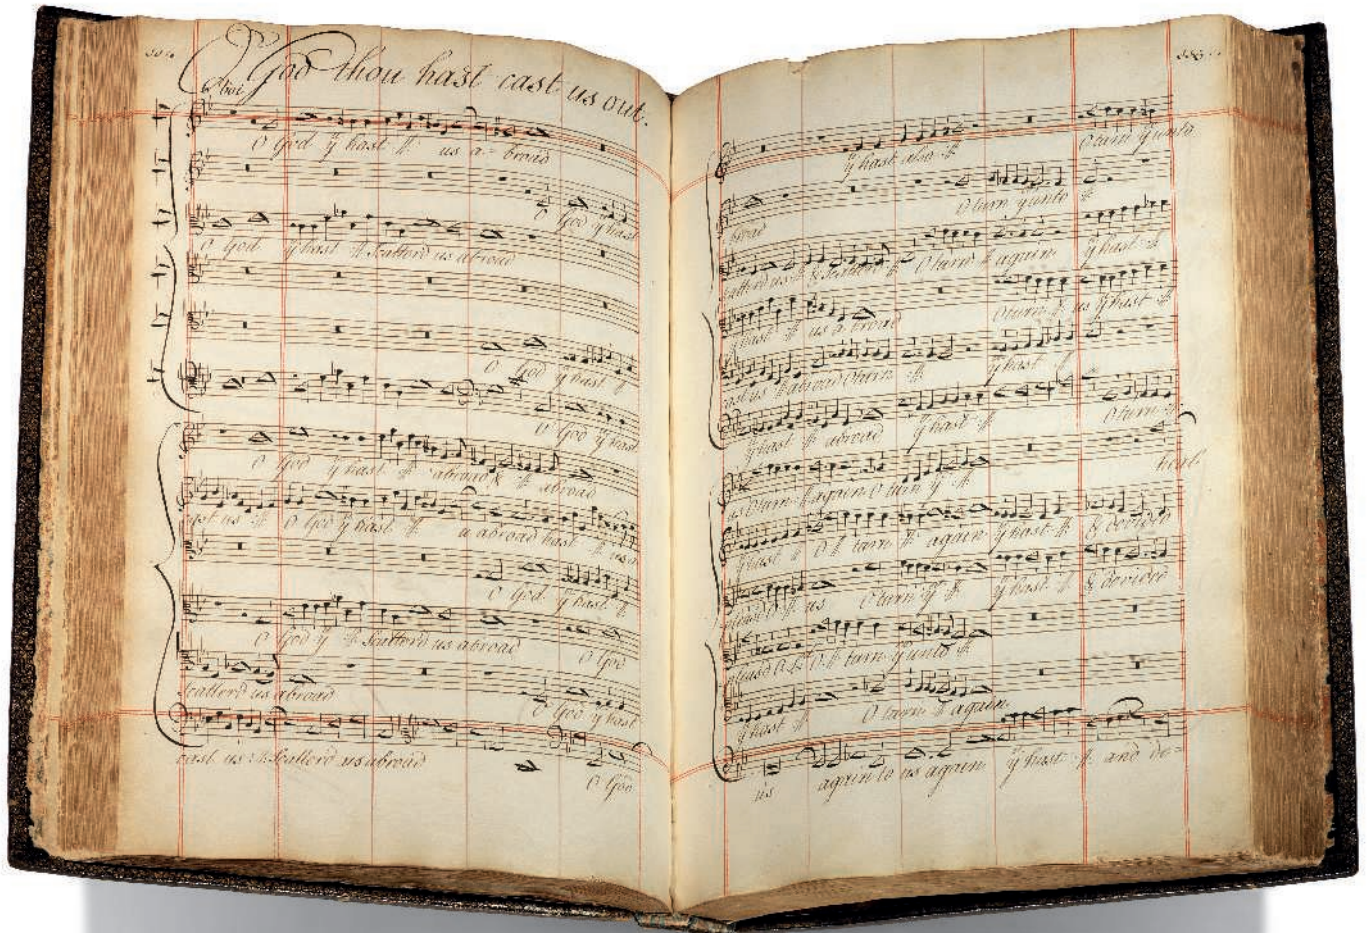 O God thou hast cast us out.
O God ÿ hast :||: us a = broad
O God ÿ hast
O God ÿ hast :||: Scatterd us abroad
O God ÿ hast :||:
O God ÿ hast
O God ÿ hast :||: abroad & :||: abroad
cast us :||: O God ÿ hast :||: abroad hast :||:
O God ÿ hast :||:
O God ÿ :||: Scatterd us abroad O God
Scatterd us abroad O God ÿ hast
cast us :||: Scatterd us abroad
O God
ÿ hast also :||: O turn ÿ unto
broad O turn ÿ unto :||:
catterd us :||: & Scatterd :||: O turn :||: again ÿ hast :||:
ÿ hast :||: us a broad O turn :||: us ÿ hast :||:
cast us :||: abroad O turn :||: ÿ hast :||:
ÿ hast :||: abroad ÿ hast :||: O turn
us O turn :||: again O turn ÿ :||:
heal
ÿ hast :||: O :||: turn :||: again ÿ hast :||: & devided
us O turn ÿ :||: ÿ hast :||: & devided
O :||: turn ÿ unto :||:
ÿ hast :||: O turn :||: again
us again to us again ÿ hast :||: and de =